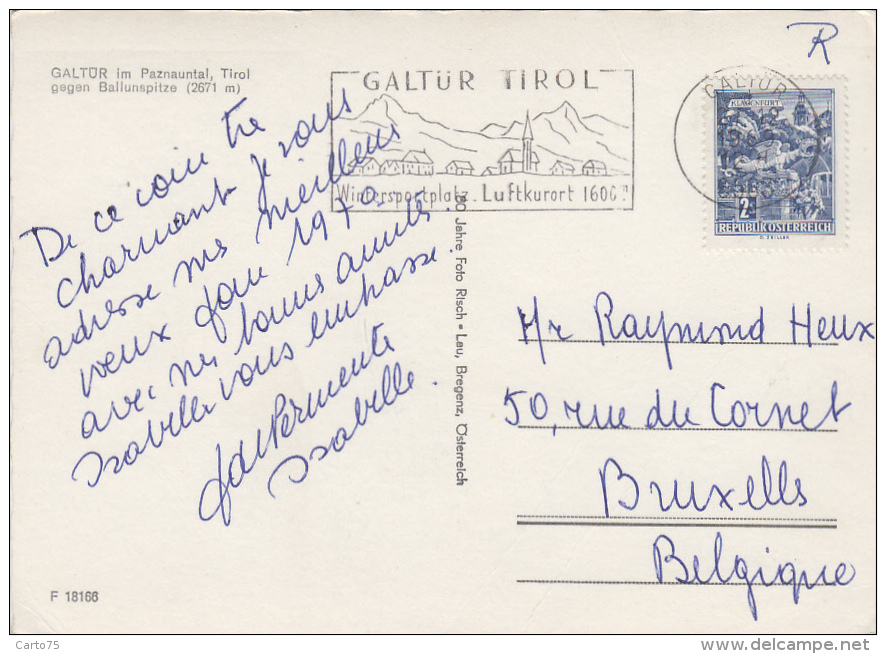 R
GALTÜR im Paznauntal, Tirol
gegen Ballunspitze (2671 m)
GALTÜR TIROL
Wintersportplatz . Luftkurort 1600 m
GALTÜR
KLAGENFURT
2
REPUBLIK ÖSTERREICH
De ce coin très
charmant je vous
adresse mes meilleurs
voeux pour 1970.
avec mes bonnes années
Isabelle vous embrasse.
Isabelle.
50 Jahre Foto Risch - Lau, Bregenz, Österreich
Mr Raymond Heux
50, rue du Cornet
Bruxells
Belgique
F 18166
Carto75
www.delcampe.net